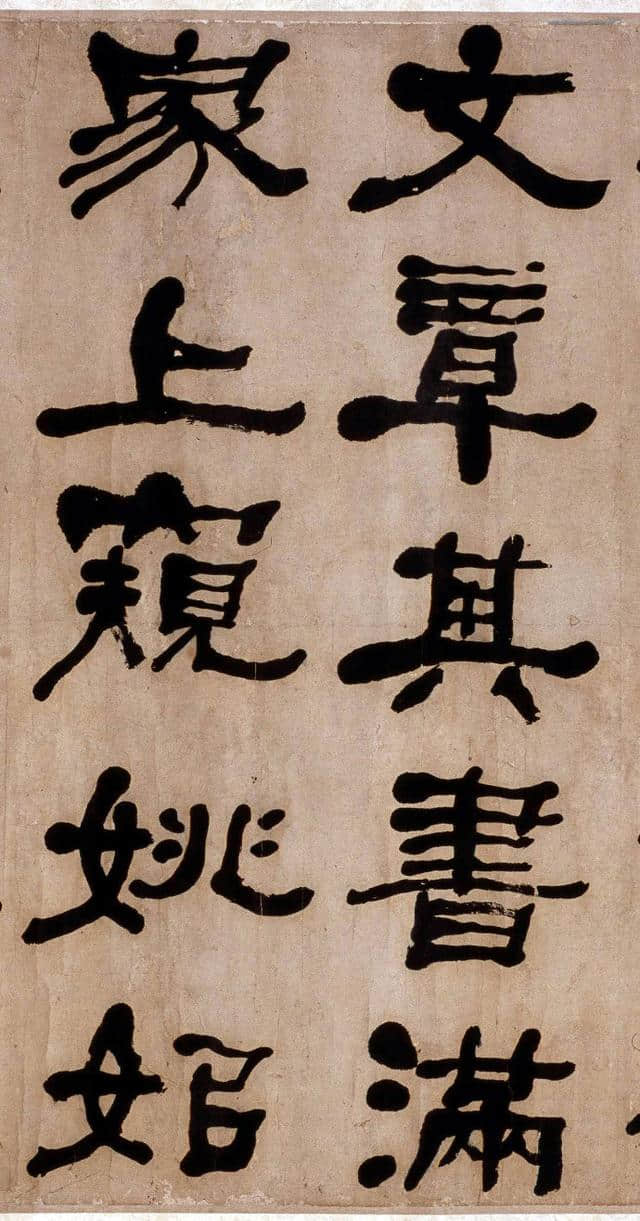 文章其書滿
家上窺姚姒